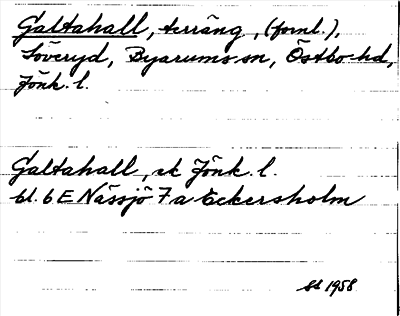 Galtahall, terräng, (fornl.),
Söveryd, Byarums sn, Östbo hd,
Jönk. l.
Galtahall, ek Jönk. l.
bl. 6 E Nässjö 7 a Eckersholm
Sd 1958